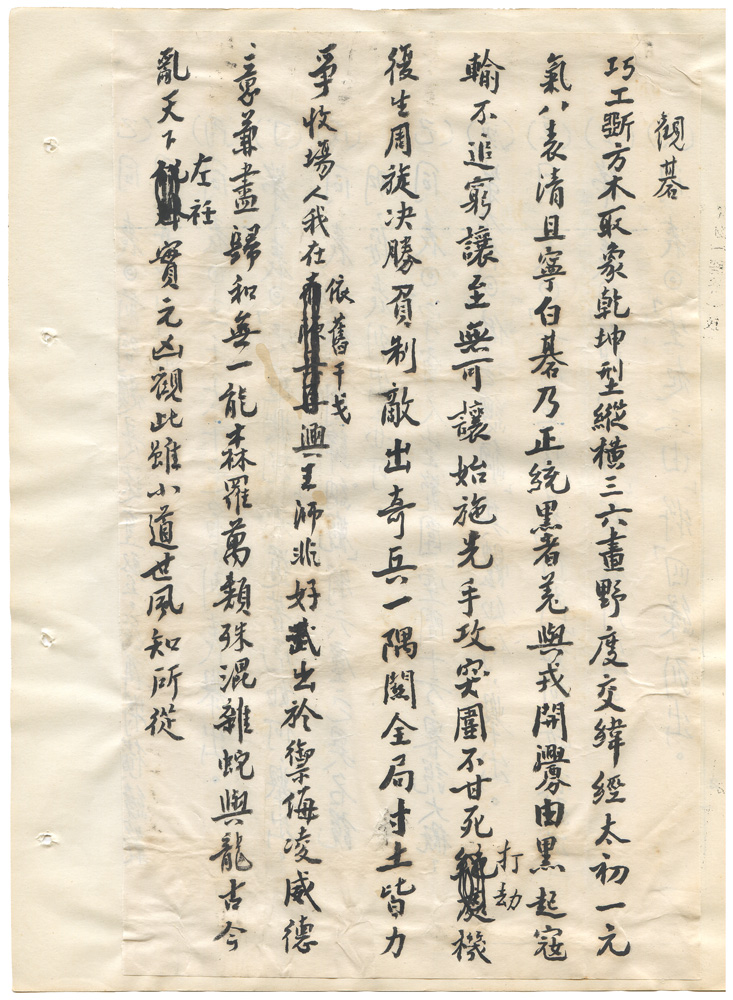 觀碁
巧工斲方木取象乾坤型縱橫三六畫野度交緯經太初一元
氣八表清且寧白碁乃正統黑者羌與戎開釁由黑起寇
輸不追窮讓至無可讓始施先手攻突圍不甘死打劫機
復生周旋決勝負制敵出奇兵一隅關全局寸土皆力
爭收場人我在依舊干戈興王師非好武出於禦侮凌威德
意兼盡歸和無一能森羅萬類殊混雜蛇與龍古今
亂天下左衽實元凶觀此雖小道世風知所從